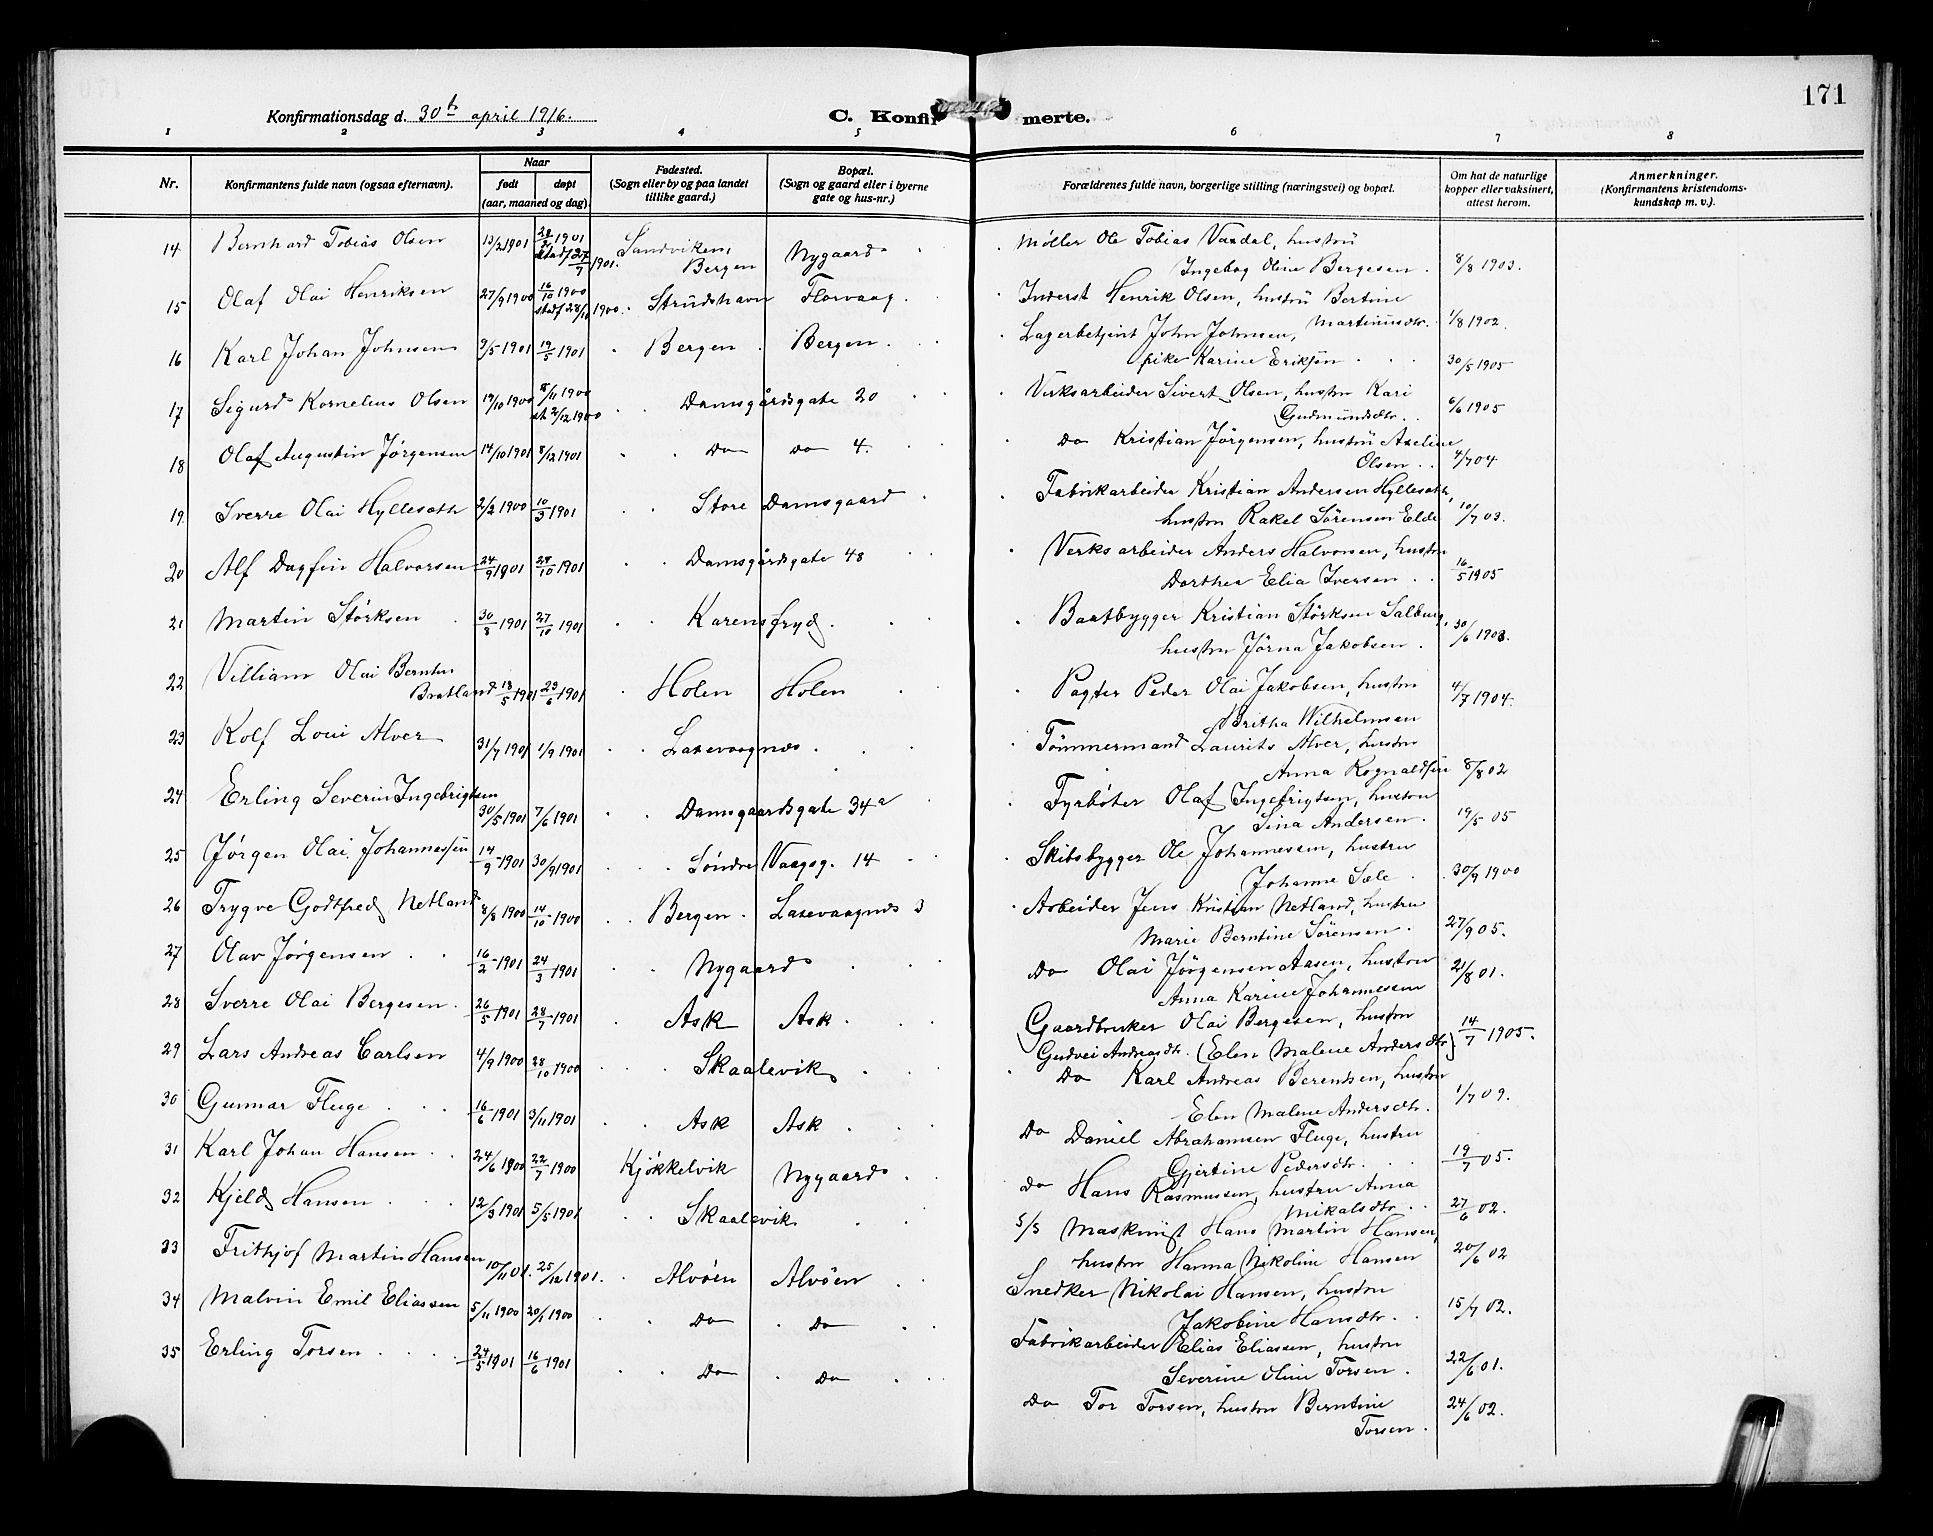 171
Konfirmationsdag d. 30te april 1916.
C. Konfirmerte.
1 2 3 4 5 6 7 8
Nr.
Konfirmantens fulde navn (ogsaa efternavn).
Naar
født døpt
(aar, maaned og dag).
Fødested.
(Sogn eller by og paa landet
tillike gaard.)
Bopæl.
(Sogn og gaard eller i byerne
gate og hus-nr.)
Forældrenes fulde navn, borgerlige stilling (næringsvei) og bopæl.
Om hat de naturlige
kopper eller vaksinert,
attest herom.
Anmerkninger.
(Konfirmantens kristendoms-
kundskap m. v.).
14 Bernhard Tobias Olsen 13/2 1901 28/2 1901 stadf 27/7 1901. Sandviken, Bergen Nygaard Møller Ole Tobias Vardal, hustru
Ingebog Oline Bergesen. 8/8 1903.
15 Olaf Olai Henriksen 27/9 1900 16/10 1900 stadf 28/11 1900. Strudshavn Florvaag. Inderst Henrik Olsen, hustru Bertine
Martinusdtr. 1/8 1902.
16 Karl Johan Johnsen 9/5 1901 19/5 1901 Bergen. Bergen. Lagerbetjent John Johnsen,
pike Karine Eriksen 30/5 1905
17 Sigurd Kornelius Olsen 19/10 1900 8/11 1900 st 2/12 1900 Damsgårdsgate 20 Verksarbeider Sivert Olsen, hustru Kari
Gudmundsdtr. 6/6 1905
18 Olaf Augustin Jørgensen 14/10 1901 8/12 1901 Do do 4. Do Kristian Jørgensen, hustru Axeline
Olsen. 4/7 04
19. Sverre Olai Hyllesæth 2/2 1900 10/3 1901 Store Damsgaard Fabrikarbeider Kristian Andersen Hyllesæth,
hustru Rakel Sørensen Elde 10/7 03.
20 Alf Dagfin Halvorsen 24/9 1901 28/10 1901 Damsgårdsgate 48 Verksarbeider Anders Halvorsen, hustru
Dorthea Elia Iversen 16/5 1905
21 Martin Størksen 30/8 1901 27/10 1901 Karensfryd. Baatbygger Kristian Størksen Salbu,
hustru Jørna Jakobsen. 30/6 1903.
22 Villiam Olai Berntin
Bratland 18/5 1901 23/6 1901 Holen Holen Pagter Peder Olai Jakobsen, hustru
Britha Wilhelmsen 4/7 1904.
23 Rolf Loui Alver 31/7 1901 1/9 1901 Laxevaagnes. Tømmermand Laurits Alver, hustru
Anna Rognaldsen 8/8 02
24 Erling Severin Ingebrigtsen 30/5 1901 7/6 1901 Damsgaardsgate 34a Fyrbøter Olaf Ingebrigtsen, hustru
Sina Andersen. 19/5 05
25 Jørgen Olai Johannessen 14/9 1901 30/9 1901 Søndre Vaagsg. 14 Skibsbygger Ole Johannessen, hustru
Johanne Sæle 30/9 1900
26 Trygve Godtfred Netland 8/8 1900 14/10 1900 Bergen. Laxevaagnes 3 Arbeider Jens Kristian Netland, hustru
Marie Berntine Sørensen. 27/9 05.
27 Olav Jørgensen 16/2 1901 24/3 1901 Nygaard Do Olai Jørgensen Aasen, hustru
Anna Karine Johannessen 21/8 01.
28 Sverre Olai Bergesen. 26/5 1901 28/7 1901 Ask Ask. Gaardbruker Olai Bergesen, hustru
Gudvei Andreasdtr. (Elen Malene Andersdtr) 14/7 1905.
29 Lars Andreas Carlsen 4/9 1900 28/10 1900 Skaalevik Do Karl Andreas Berentsen, hustru
Elen Malene Andersdtr. 1/7 09.
30 Gunnar Fluge 16/6 1901 3/11 1901 Ask Ask Do Daniel Abrahamsen Fluge, hustru
Gjertine Pedersdtr. 19/7 05.
31 Karl Johan Hansen 24/6 1900 22/7 1900 Kjøkkelvik Nygaard Do Hans Rasmussen, hustru Anna
Mikalsdtr. 27/6 02.
32 Kjeld Hansen 12/3 1901 5/5 1901 Skaalevik S/S Maskinist Hans Martin Hansen,
hustru Hanna Nikoline Hansen 20/6 02
33 Frithjof Martin Hansen 10/11 01. 25/12 1901. Alvøen Alvøen Snedker Nikolai Hansen, hustru
Jakobine Hansdtr. 15/7 02.
34 Malvin Emil Eliassen 5/11 1900 20/1 1900 Do Do Fabrikarbeider Elias Eliassen, hustru
Severine Oline Torsen. 22/6 01.
35 Erling Torsen 24/5 1901 16/6 1901 Do Do Do Tor Torsen, hustru Berntine
Torsen. 24/6 02.